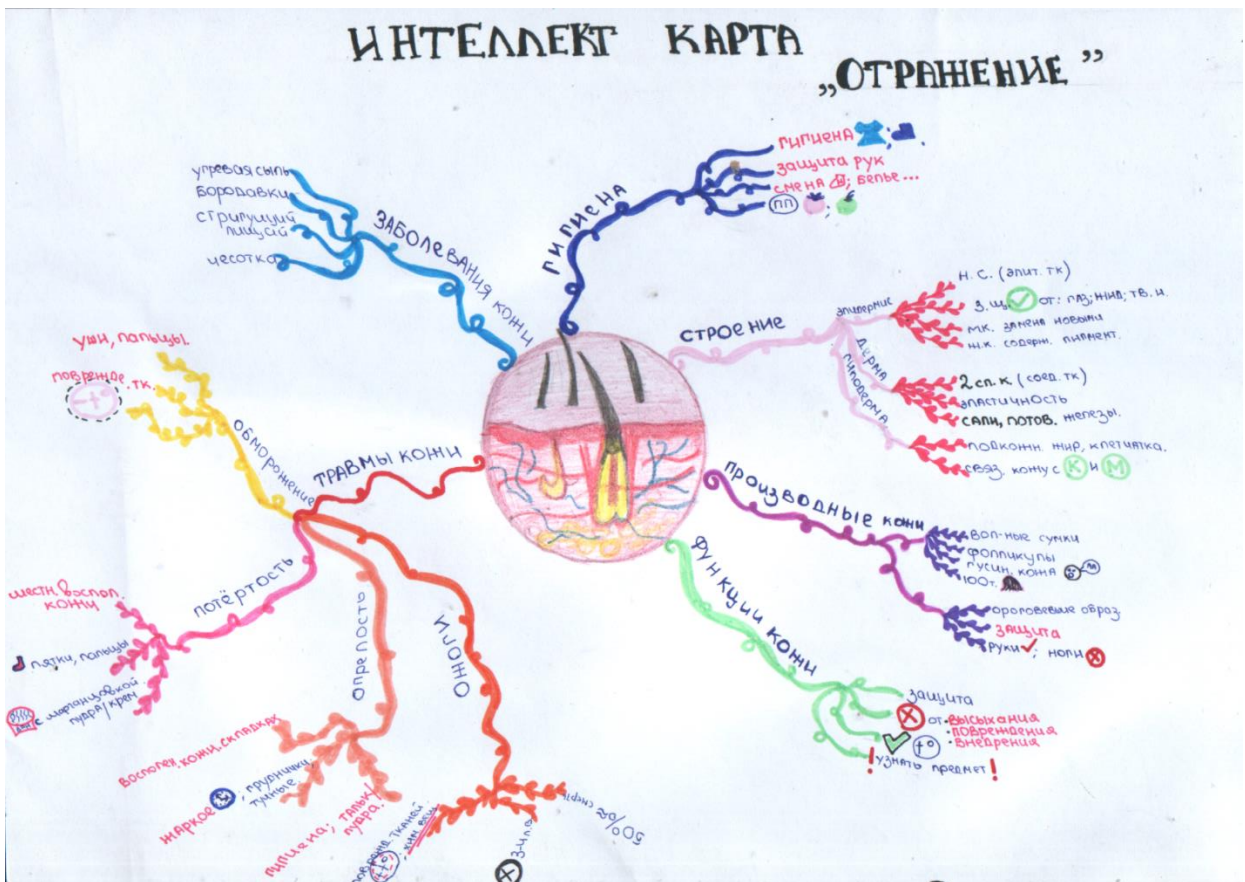 ИНТЕЛЛЕКТ КАРТА
„ОТРАЖЕНИЕ”
ГИГИЕНА
ГИГИЕНА
защита рук
смена ; белье...
ПП
ЗАБОЛЕВАНИЯ КОЖИ
угревая сыпь
бородавки
стригущий
лишай
чесотка
СТРОЕНИЕ
эпидермис
Н.С. (эпит. тк)
З.Ш. от: газ; жид; тв. и.
мк. замена новыми
н.к. содерж. пигмент.
ДЕРМА
2 сл. к (соед. тк)
эластичность
САЛН, ПОТОВ. железы.
ГИПОДЕРМА
подкожн. жир, клетчатка.
связ. кожу с К и М
ПРОИЗВОДНЫЕ КОЖИ
вол-ные сумки
фолликулы
гусин. кожа
100т.
ороговевшие образ
ЗАЩИТА
РУКИ ; НОГИ
ФУНКЦИИ КОЖИ
защита
от • ВЫСЫХАНИЯ
• ПОВРЕЖДЕНИЯ
• ВНЕДРЕНИЯ
t°
! узнать предмет !
ТРАВМЫ КОЖИ
обморожение
уши, пальцы.
поврежде. тк.
-t°
ПОТЁРТОСТЬ
местн. воспол.
кожи
пятки, пальцы
с марганцовкой
пудра/крем
ОПРЕЛОСТЬ
воспален. кожн. складках
жаркое ; груднички,
тучные
гигиена; тальк/
пудра.
ОЖОГИ
тканей
+t°
50% смерть